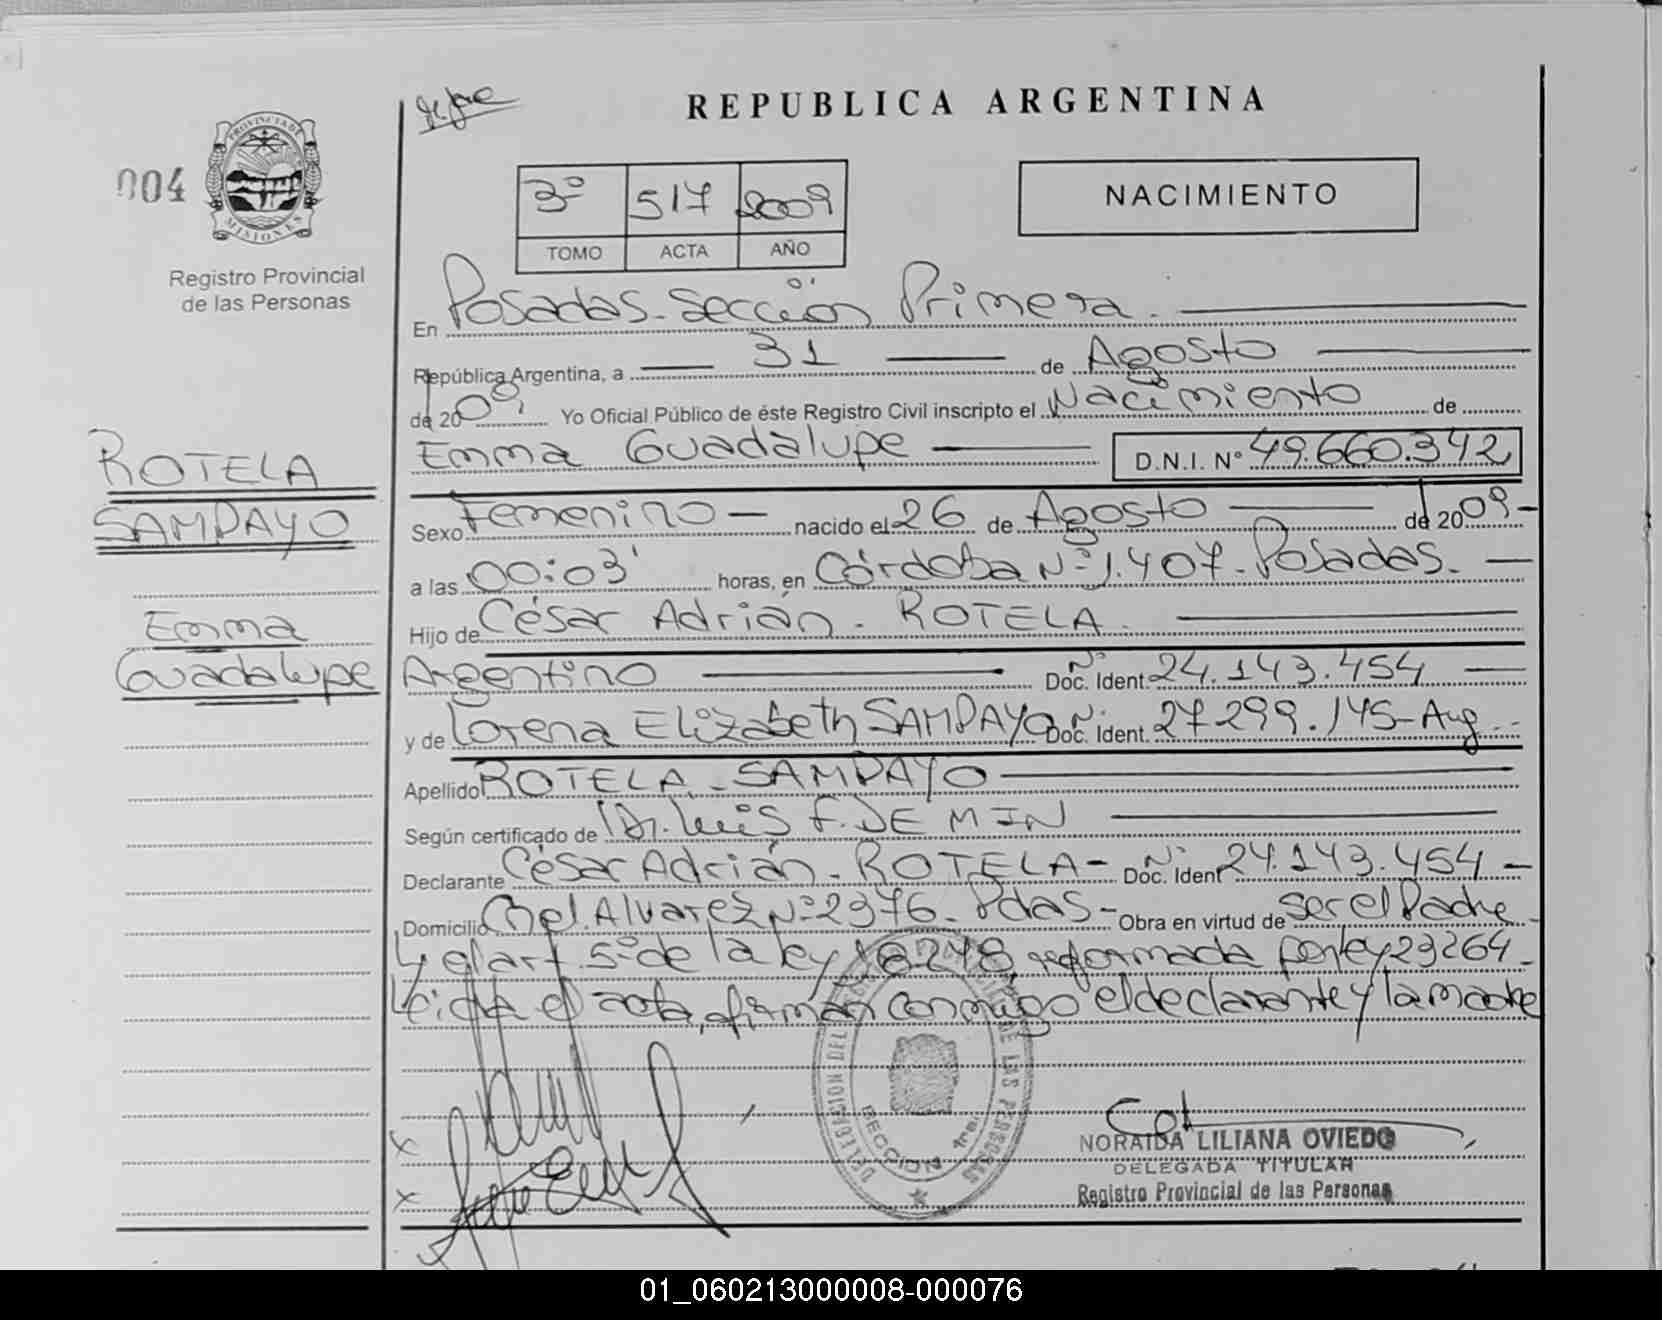 REPUBLICA ARGENTINA
004
PROVINCIA DE
MISIONES
Registro Provincial
de las Personas
3º 517 2009
TOMO ACTA AÑO
NACIMIENTO
En Posadas - Sección Primera.
República Argentina, a 31 de Agosto
de 2009 Yo Oficial Público de éste Registro Civil inscripto el Nacimiento de
Emma Guadalupe D.N.I. Nº 49.660.342
ROTELA
SAMPAYO
Emma
Guadalupe
Sexo Femenino - nacido el 26 de Agosto de 2009 -
a las 00:03' horas, en Córdoba Nº 1.407 - Posadas. -
Hijo de César Adrián - ROTELA.
Argentino Doc. Ident. Nº 24.143.454
y de Lorena Elizabeth SAMPAYO Doc. Ident. Nº 27.299.145 - Arg.
Apellido ROTELA - SAMPAYO
Según certificado de Dr. Luis F. DE MIN
Declarante César Adrián - ROTELA - Doc. Ident. Nº 24.143.454 -
Domicilio Cnel. Alvarez Nº 2376 - Pdas - Obra en virtud de ser el Padre
y el art. 5º de la ley 18248 reformada por ley 23264 -
Leida el acta, firman conmigo el declarante y la madre
DELEGACION DE LAS PERSONAS
SECCION 1ra.
NORAIDA LILIANA OVIEDO
DELEGADA TITULAR
Registro Provincial de las Personas
01_060213000008-000076